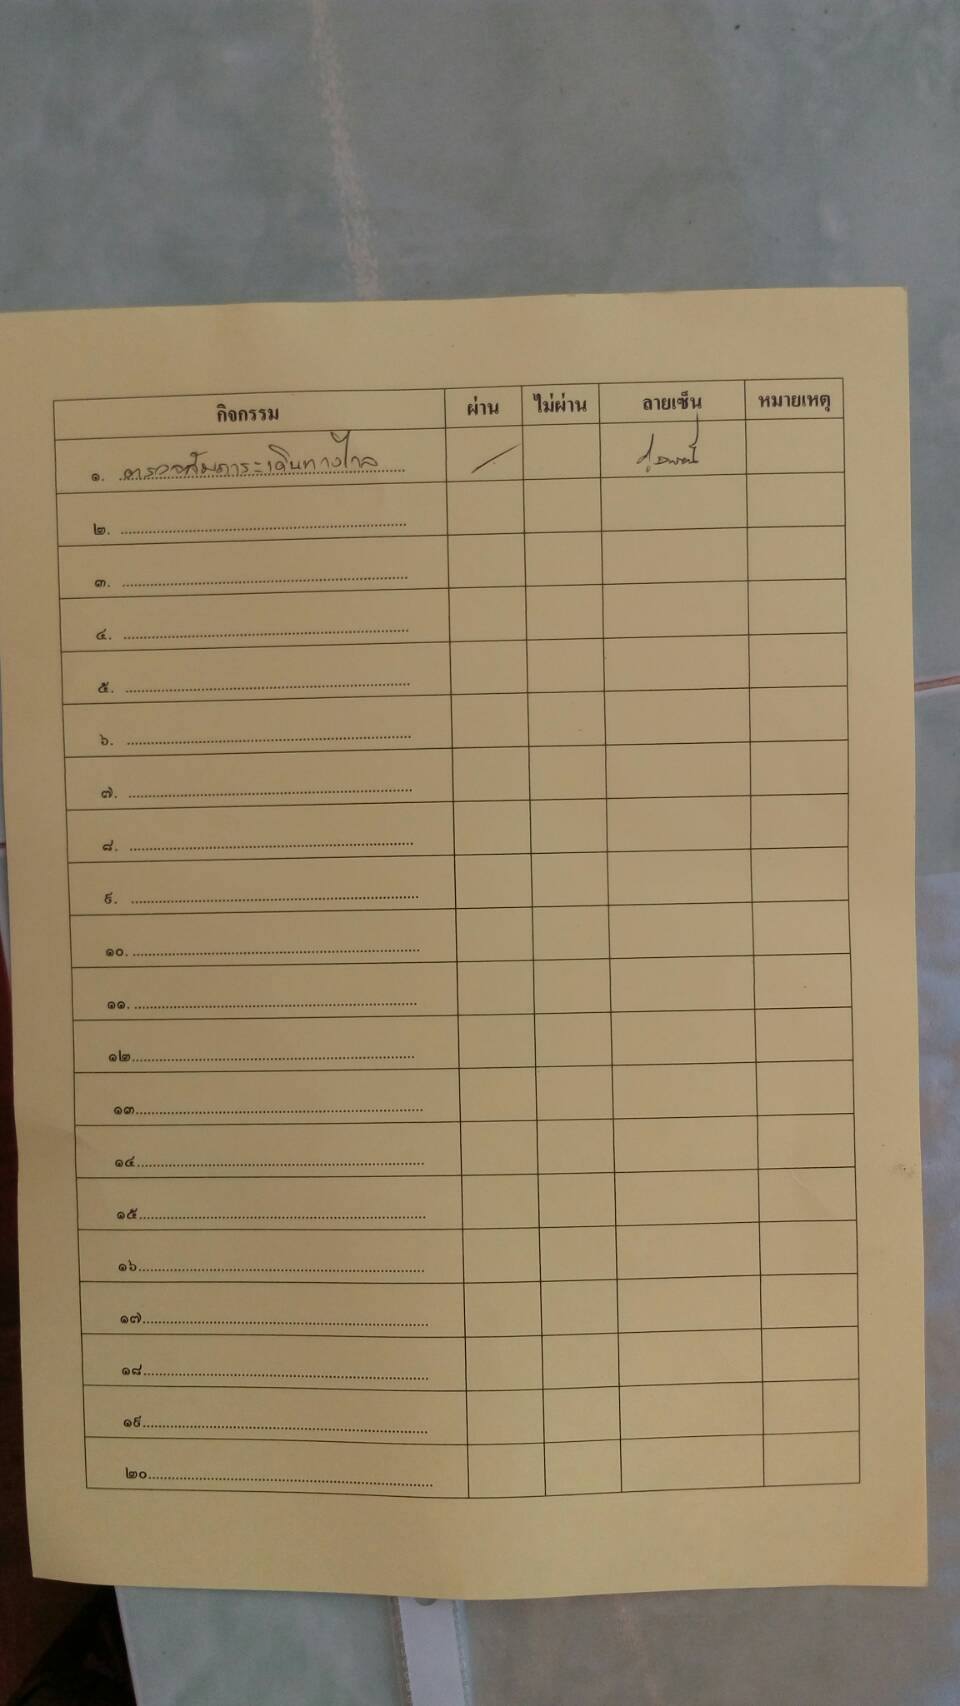 กิจกรรม ผ่าน ไม่ผ่าน ลายเซ็น หมายเหตุ
๑. ตรวจสัมภาระเดินทางไกล /
๒.
๓.
๔.
๕.
๖.
๗.
๘.
๙.
๑๐.
๑๑.
๑๒
๑๓
๑๔
๑๕
๑๖
๑๗
๑๘
๑๙
๒๐